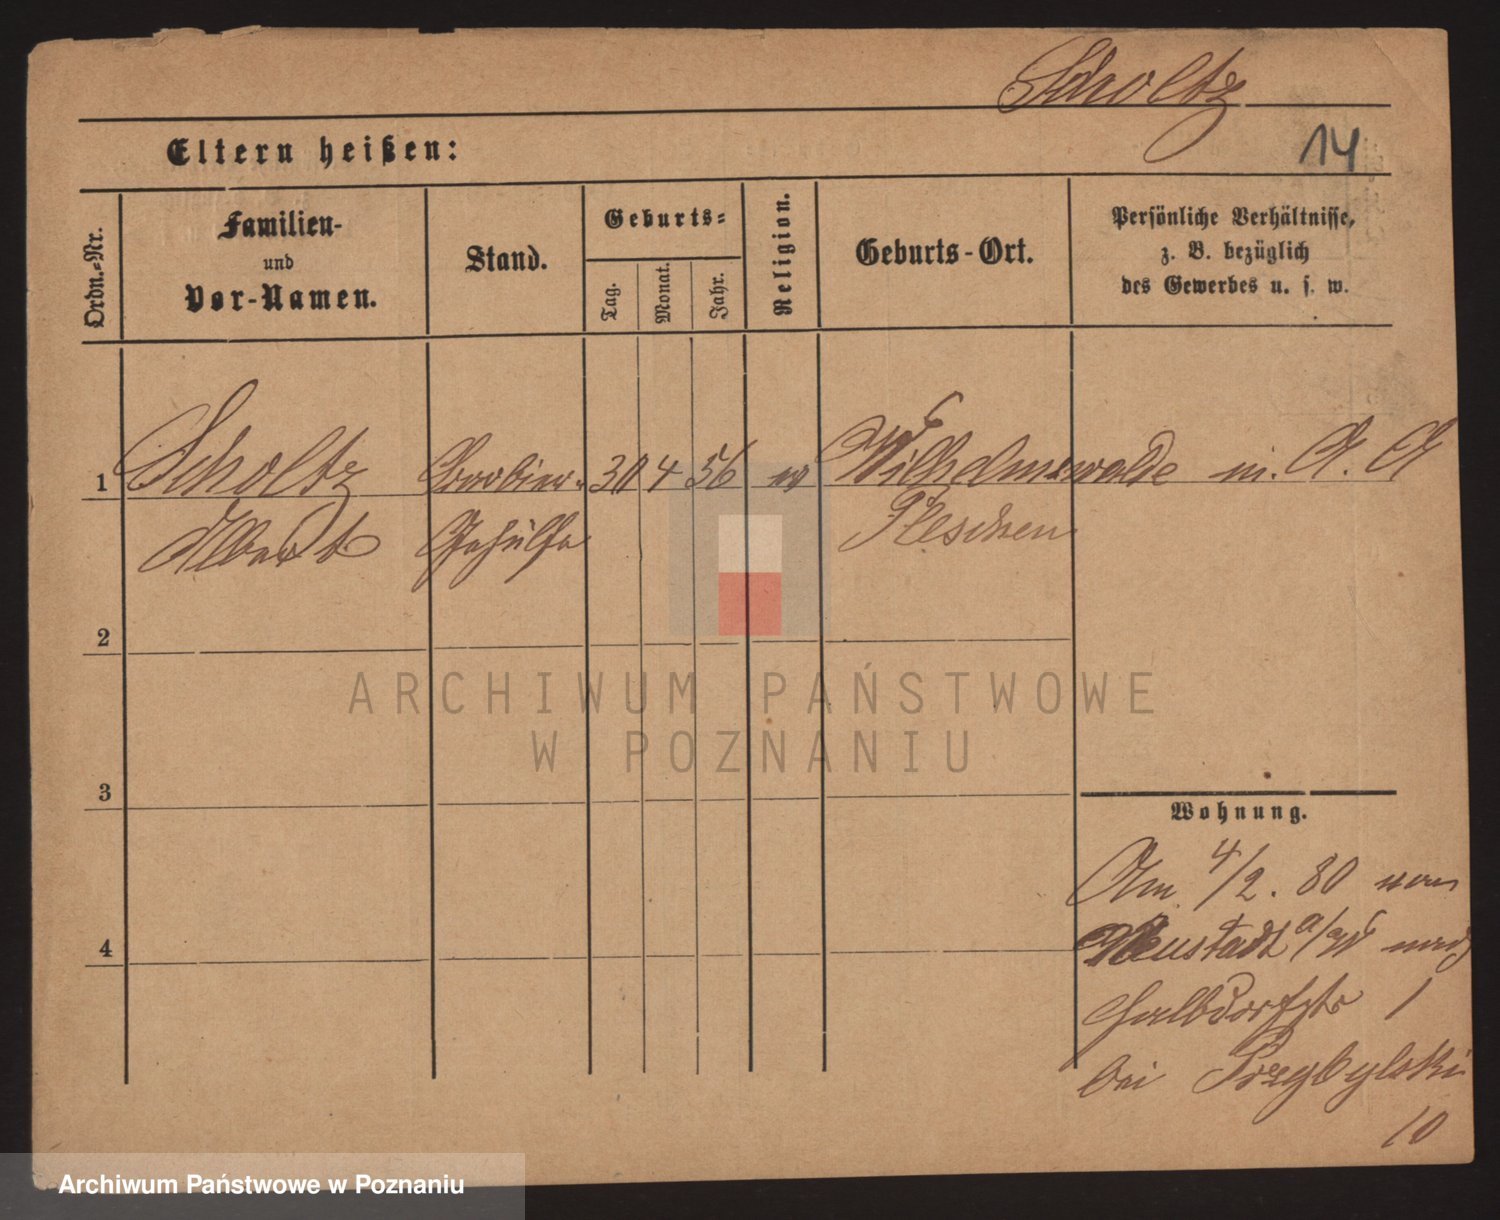 Scholtz
14
Eltern heißen:
Ordn.-Nr.
Familien-
und
Vor-Namen.
Stand.
Geburts-
Tag.
Monat.
Jahr.
Religion.
Geburts-Ort.
Persönliche Verhältnisse,
z. B. bezüglich
des Gewerbes u. s. w.
1 Scholtz Barbier- 30 4 56 ev Wilhelmswalde
Albert Gehülfe Pleschen
2
3
4
Wohnung.
Am 4/2. 80 von
Neustadt a/W nach
Halbdorfstr 1
bei Przybylski
10
ARCHIWUM PAŃSTWOWE
W POZNANIU
Archiwum Państwowe w Poznaniu